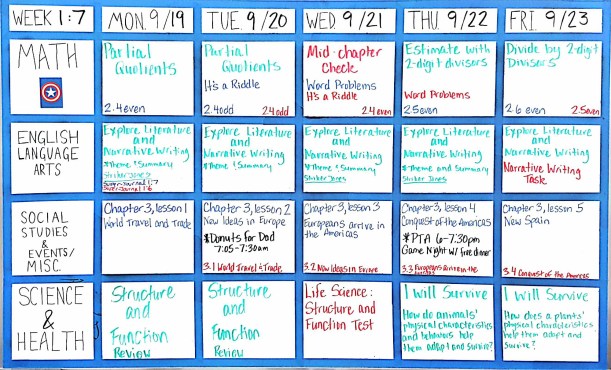 WEEK 1:7
MON. 9/19
TUE. 9/20
WED. 9/21
THU. 9/22
FRI. 9/23
MATH
Partial
Quotients
2.4 even
Partial
Quotients
It's a Riddle
2.4 odd
2.4 odd
Mid-chapter
Check
Word Problems
It's a Riddle
2.4 even
Estimate with
2-digit divisors
Word Problems
2.5 even
Divide by 2-digit
Divisors
2.6 even
2.5 even
ENGLISH
LANGUAGE
ARTS
Explore Literature
and
Narrative Writing
*Theme & Summary
Striker Jones
Super Journal 1:7
Super Journal 1:6
Explore Literature
and
Narrative Writing
*Theme & Summary
Explore Literature
and
Narrative Writing
*Theme & Summary
Striker Jones
Explore Literature
and
Narrative Writing
*Theme and Summary
Striker Jones
Explore Literature
and
Narrative Writing
Narrative Writing
Task
SOCIAL
STUDIES
&
EVENTS/
MISC.
Chapter 3, lesson 1
World Travel and Trade
Chapter 3, lesson 2
New Ideas in Europe
*Donuts for Dad
7:05-7:30am
3.1 World Travel & Trade
Chapter 3, lesson 3
Europeans arrive in
the Americas
3.2 New Ideas in Europe
Chapter 3, lesson 4
Conquest of the Americas
*PTA 6-7:30pm
Game Night w/ free dinner
3.3 Europeans arrive in the
Chapter 3, lesson 5
New Spain
3.4 Conquest of the Americas
SCIENCE
&
HEALTH
Structure
and
Function
Review
Structure
and
Function
Review
Life Science:
Structure and
Function Test
I Will Survive
How do animals'
physical characteristics
and behaviors help
them adapt and survive?
I Will Survive
How does a plants'
physical characteristics
help them adapt and
survive?